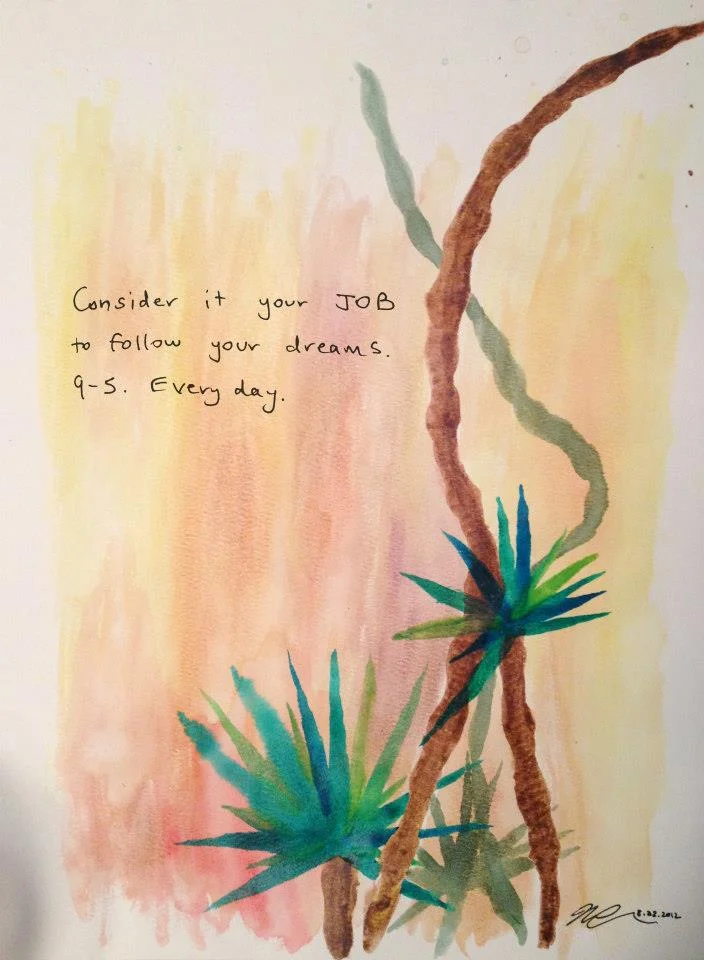 Consider it your JOB
to follow your dreams.
9-5. Every day.
8.28.2012